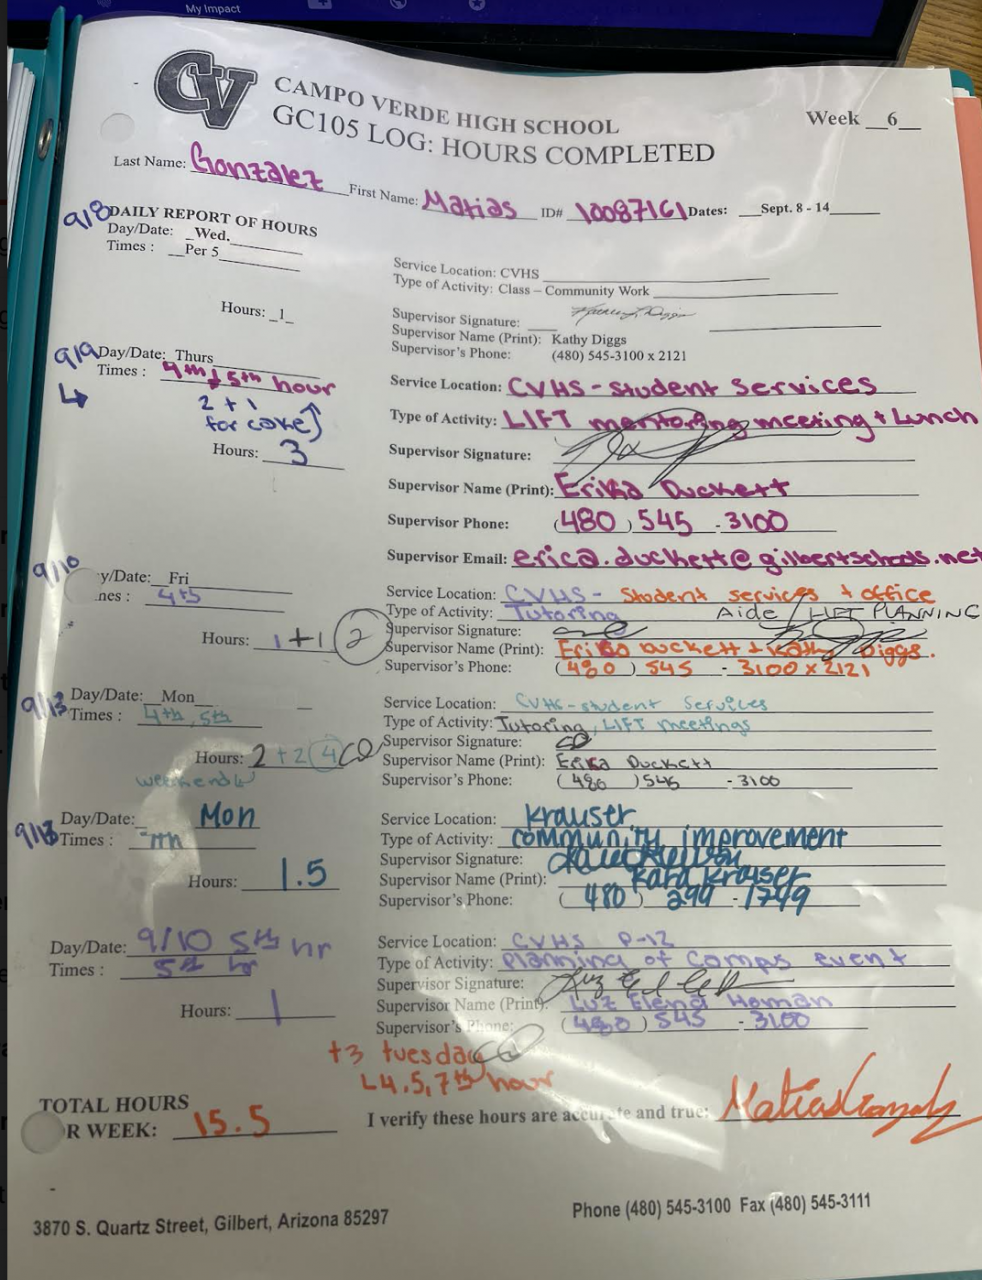 My Impact
CV
CAMPO VERDE HIGH SCHOOL
GC105 LOG: HOURS COMPLETED
Week __6__
Last Name: Gonzalez First Name: Matias ID# 10087161 Dates: Sept. 8 - 14
9/8 DAILY REPORT OF HOURS
Day/Date: _Wed.
Times : __Per 5
Hours: _1_
Service Location: CVHS
Type of Activity: Class – Community Work
Supervisor Signature:
Supervisor Name (Print): Kathy Diggs
Supervisor's Phone: (480) 545-3100 x 2121
9/9 Day/Date: Thurs
Times : 4th & 5th hour
2 + 1
for core
Hours: 3
Service Location: CVHS - Student Services
Type of Activity: LIFT mentoring meeting + Lunch
Supervisor Signature:
Supervisor Name (Print): Erika Duckett
Supervisor Phone: (480) 545 - 3100
Supervisor Email: erica.duckett@gilbertschools.net
9/10 y/Date: __Fri
nes : 4+5
Hours: 1 + 1 2
Service Location: CVHS - Student Services + office
Type of Activity: Tutoring Aide / LIFT PLANNING
Supervisor Signature:
Supervisor Name (Print): Erika Duckett + Kathy Diggs.
Supervisor's Phone: (480) 545 - 3100 x 2121
9/13 Day/Date: __Mon
Times : 4th, 5th
Hours: 2 + 2 4
weekend
Service Location: CVHS - Student Services
Type of Activity: Tutoring, LIFT meetings
Supervisor Signature:
Supervisor Name (Print): Erika Duckett
Supervisor's Phone: (480) 545 - 3100
9/13 Day/Date: Mon
Times :
Hours: 1.5
Service Location: Krauser
Type of Activity: community improvement
Supervisor Signature:
Supervisor Name (Print): Kara Krauser
Supervisor's Phone: (480) 299 - 1749
Day/Date: 9/10 5th hr
Times : 5th hr
Hours: 1
Service Location: CVHS P-12
Type of Activity: Planning of Comps event
Supervisor Signature:
Supervisor Name (Print): Luz Elena Homan
Supervisor's Phone: (480) 545 - 3100
+3 tuesday
4.5, 7th hour
TOTAL HOURS
R WEEK: 15.5
I verify these hours are accurate and true: Matias Gonzalez
3870 S. Quartz Street, Gilbert, Arizona 85297
Phone (480) 545-3100 Fax (480) 545-3111